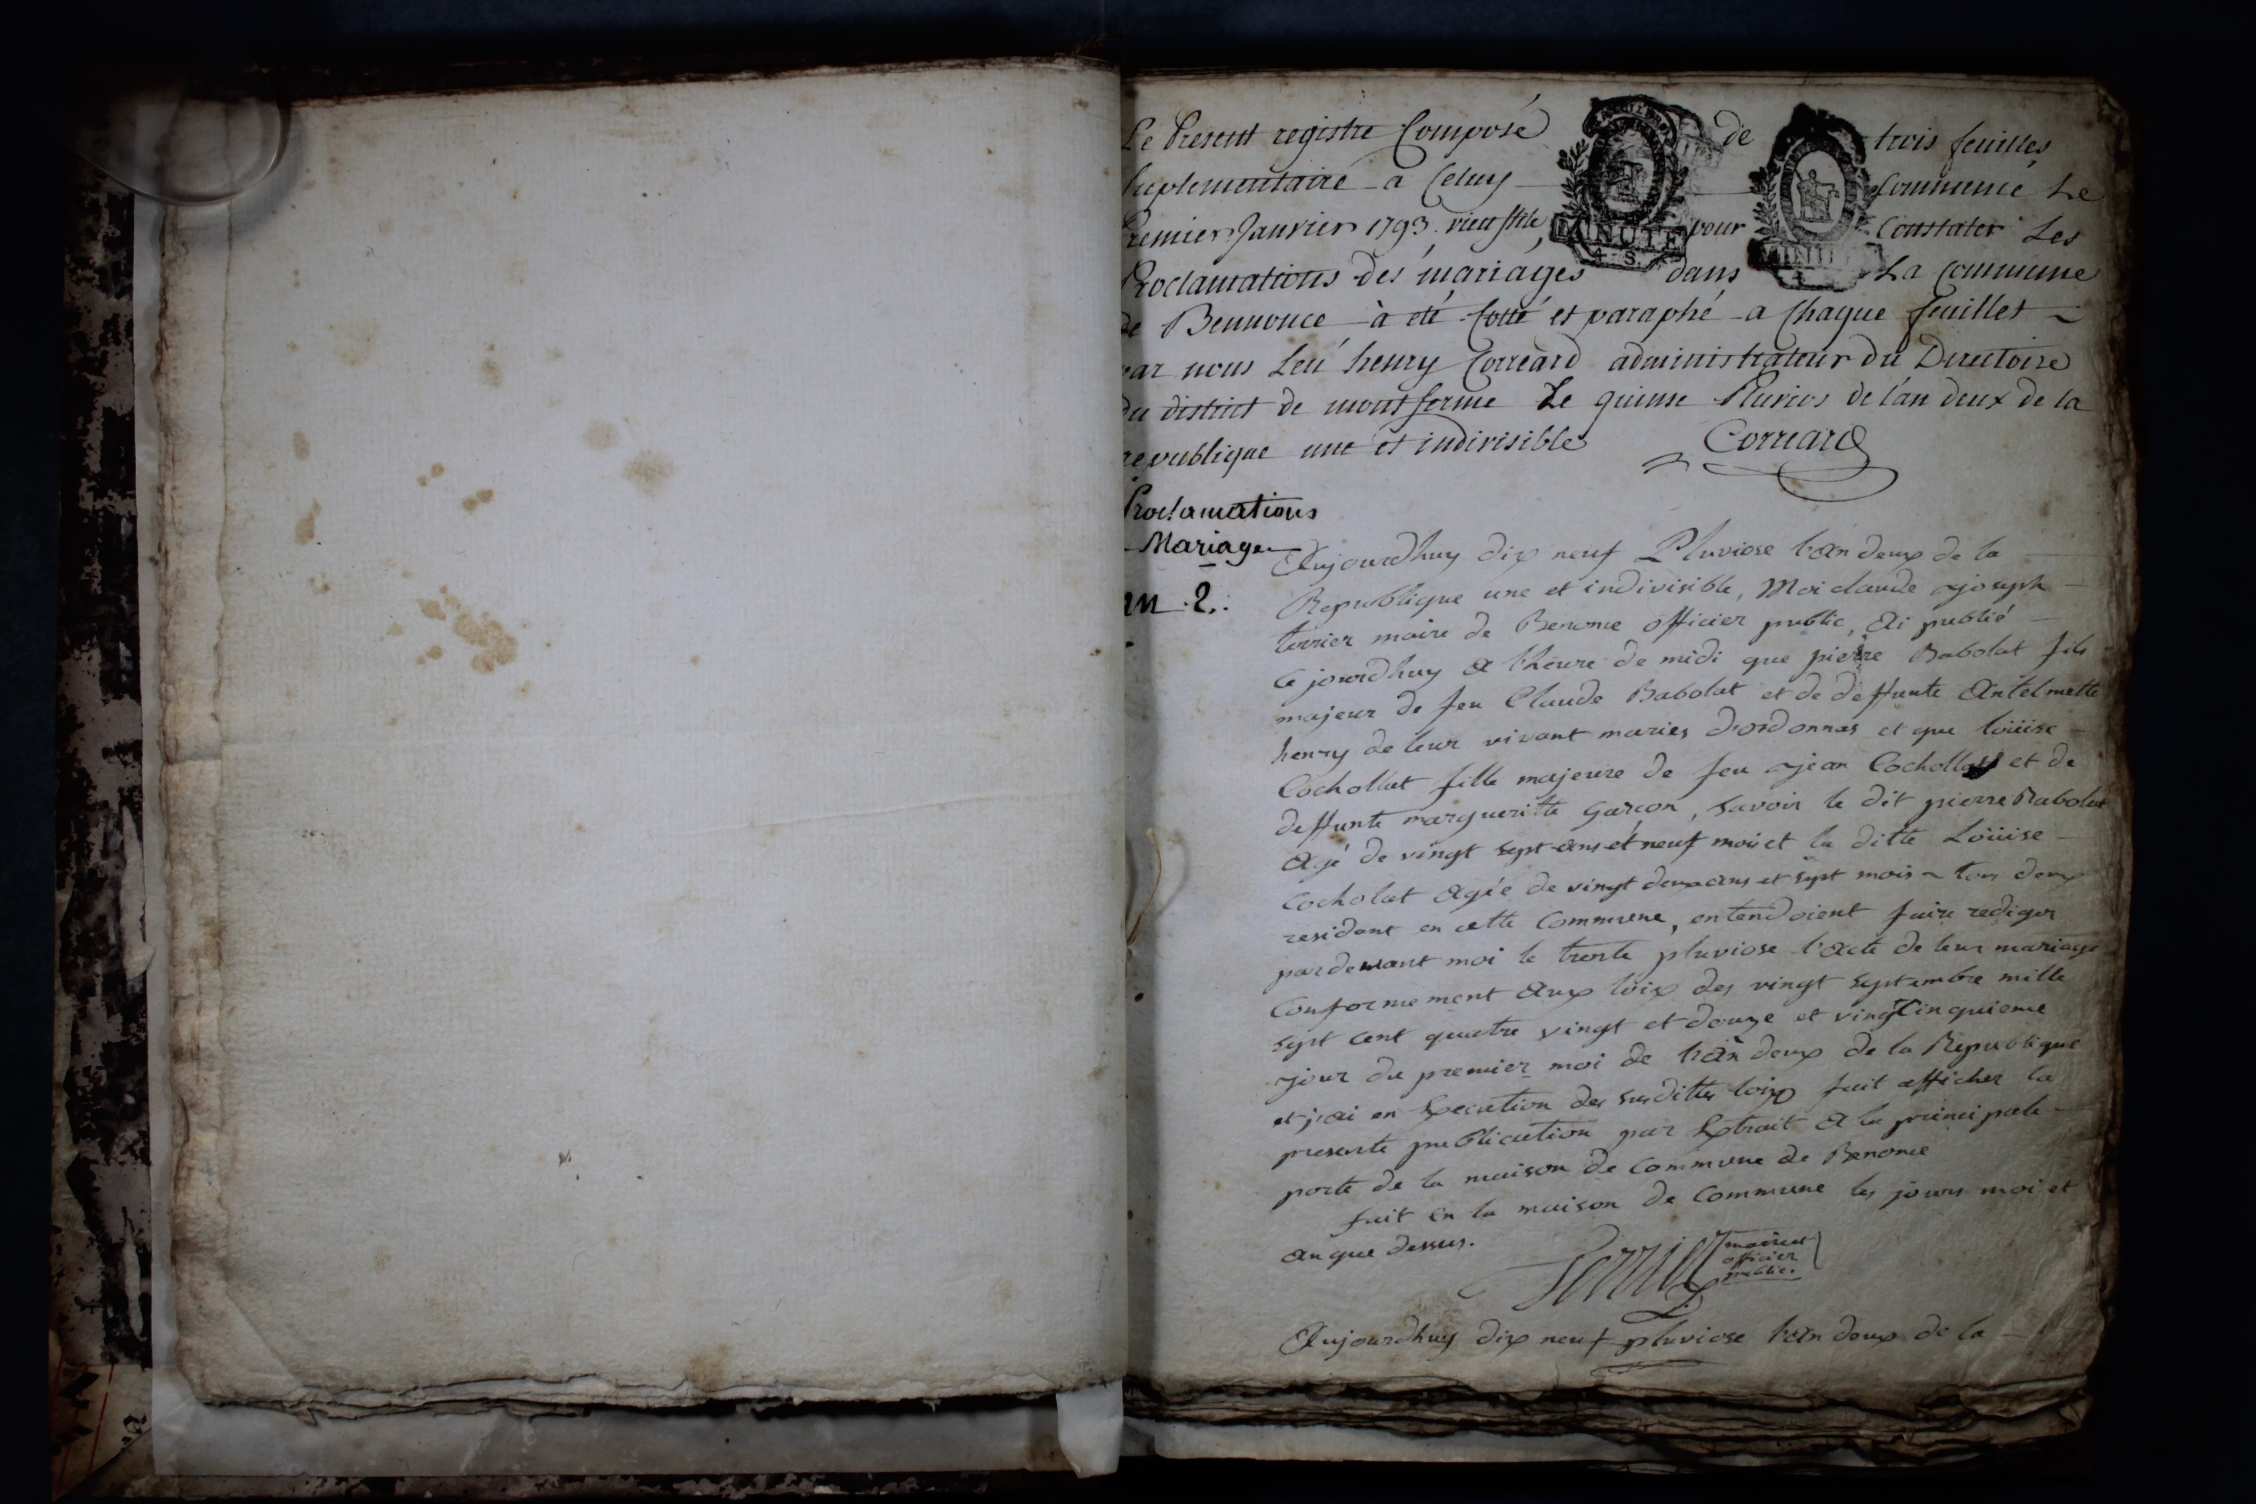 Le Present registre Composé de trois feuilles
suplementaire a Celuy Commencé Le
Premier Janvier 1793 vieu stile pour Constater Les
Proclamations des mariages dans La Commune
de Bennonce à été Cotté et paraphé a Chaque feuillet
par nous henry Correard administrateur du Directoire
du district de mont ferme Le quinse Pluvios de l'an deux de la
republique une et indivisible Correard
MINUTE
4. S.
Proclamations
Mariage
an 2.
Aujourdhuy dix neuf Pluviose l'an deux de la
Republique une et indivisible, Moi claude joseph
terrier maire de Benonce officier public, ai publié
ce jourdhuy a l'heure de midi que pierre Babolat fils
majeur de feu Claude Babolat et de deffunte Antelmette
henry de leur vivant maries d'ordonnas et que loüise
Cochollat fille majeure de feu jean Cochollat et de
deffunte margueritte garçon, savoir le dit pierre Babolat
agé de vingt sept ans et neuf moi et la ditte Loüise
Cocholat agée de vingt deux ans et sept mois tous deux
resident en cette Commune, entendoient faire rediger
pardevant moi le trente pluviose l'acte de leur mariage
Conformement aux loix des vingt septembre mille
sept cent quatre vingt et douze et vingt Cinquieme
jour du premier moi de l'an deux de la Republique
et j'ai en Execution des susdittes loix fait afficher la
presente publication par Extrait a la principale
porte de la maison de Commune de Benonce
fait en la maison de Commune les jours moi et
an que dessus.
Terrier maire et
officier
public.
Aujourdhuy dix neuf pluviose l'an deux de la